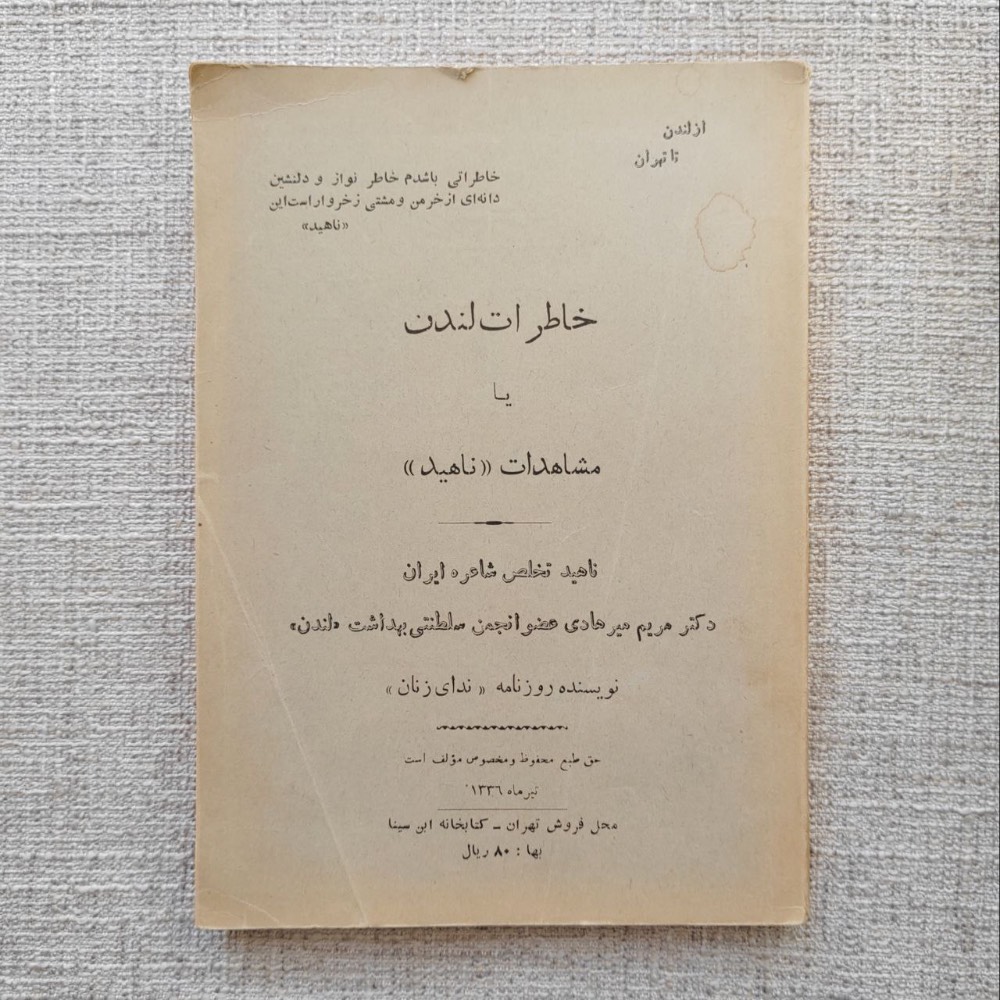 از لندن
تا تهران
خاطراتی باشدم خاطر نواز و دلنشین
دانه‌ای از خرمن و مشتی ز خروار است این
«ناهید»
خاطرات لندن
یا
مشاهدات «ناهید»
ناهید تخلص شاعره ایران
دکتر مریم میرهادی عضو انجمن سلطنتی بهداشت «لندن»
نویسنده روزنامه «ندای زنان»
حق طبع محفوظ و مخصوص مؤلف است
تیرماه ۱۳۳۶
محل فروش تهران - کتابخانه ابن سینا
بها : ۸۰ ریال